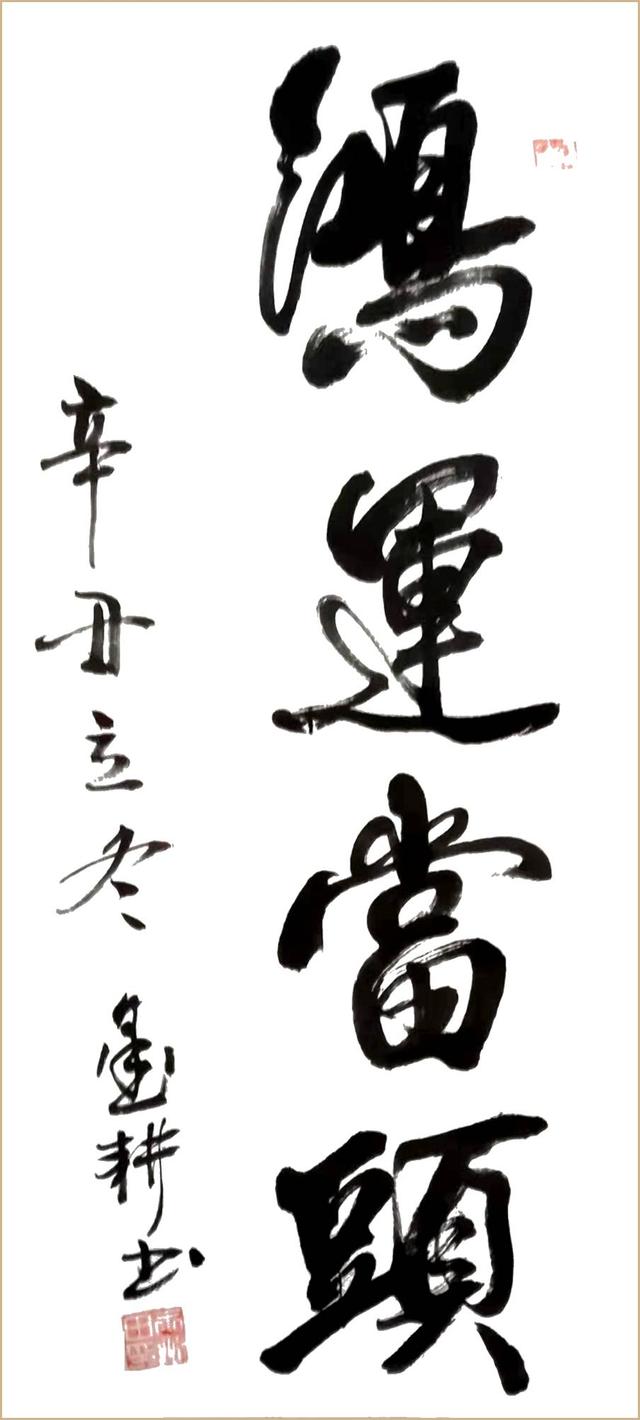 鴻運當頭
辛丑立冬 墨耕书